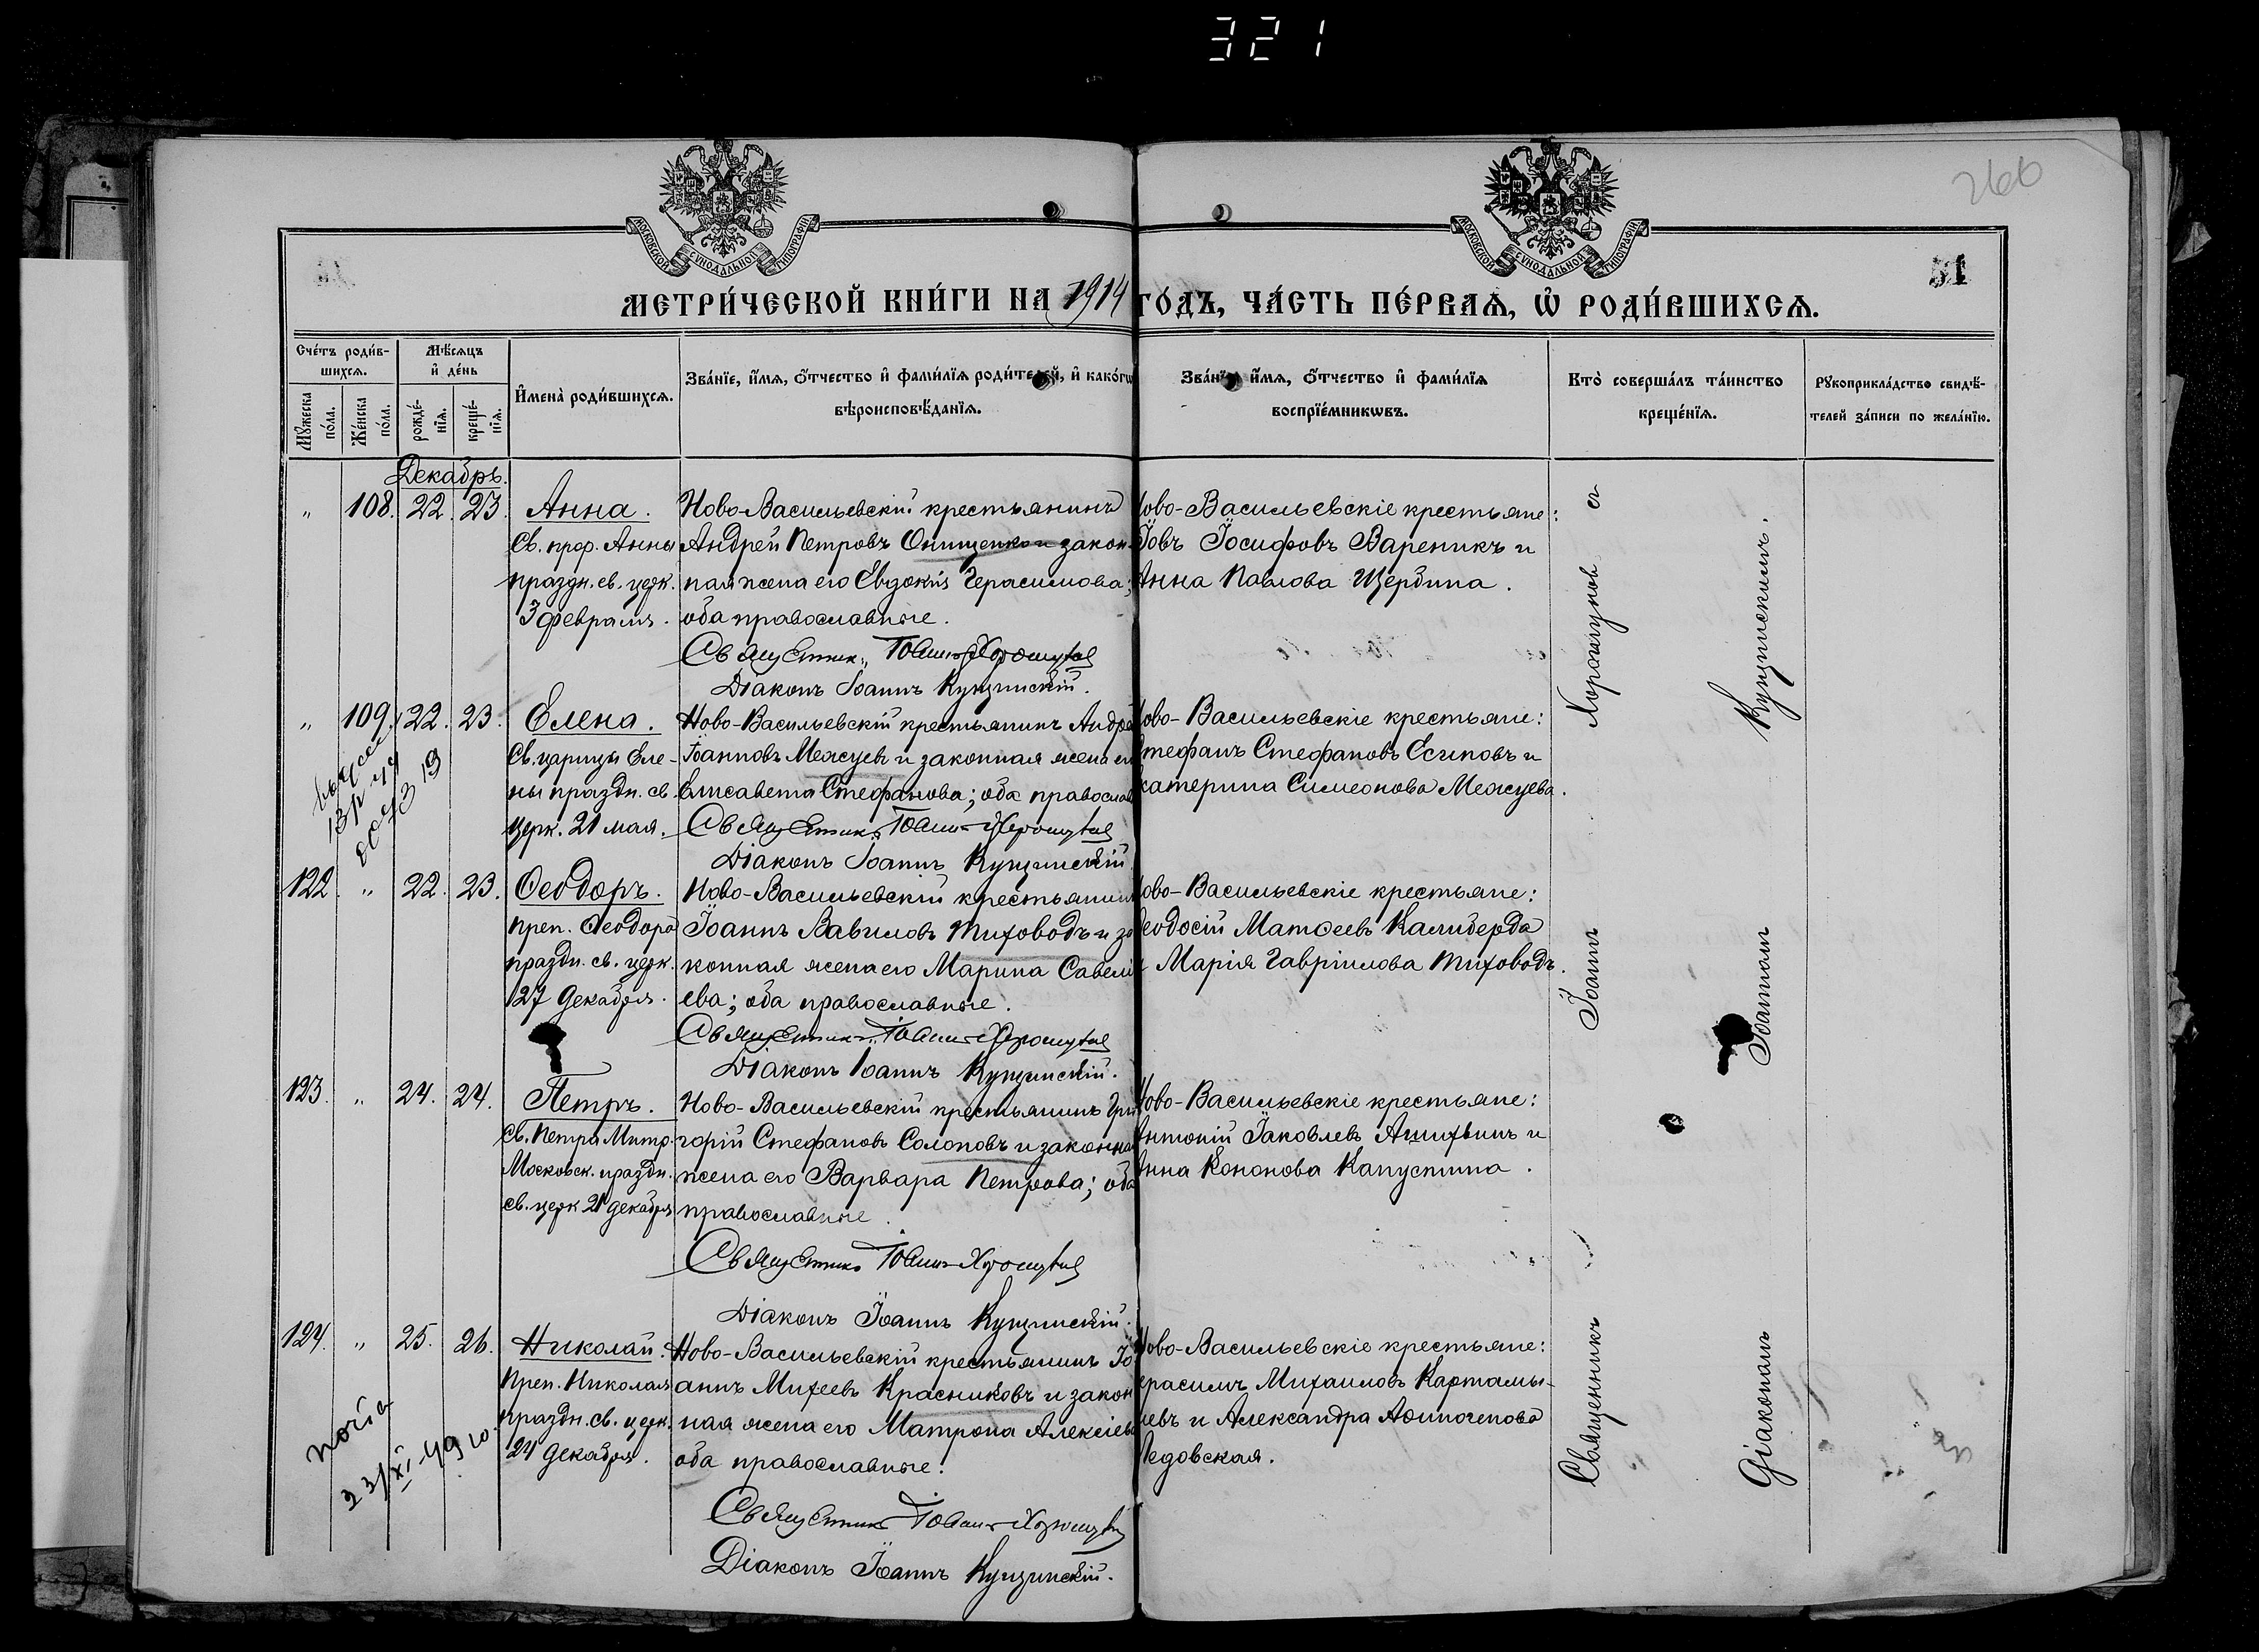 321
260
51
МОСКОВСКОЙ СѴНОДАЛЬНОЙ ТИПОГРАФІИ
МОСКОВСКОЙ СѴНОДАЛЬНОЙ ТИПОГРАФІИ
МЕТРИ́ЧЕСКОЙ КНИ́ГИ НА 1914 ГО́ДЪ, ЧА́СТЬ ПЕ́РВАѦ, Ѡ҆ РОДИ́ВШИХСѦ.
Сче́тъ роди́в-
шихсѧ.
Мѣ́сѧцъ
и҆ де́нь
Мꙋ́жеска
по́ла.
Же́нска
по́ла.
рожде́-
нїѧ.
креще́-
нїѧ.
И҆мена̀ роди́вшихсѧ.
Зва́нїе, и҆́мѧ, ѻ҆́тчество и҆ фами́лїѧ роди́телей, и҆ како́гѡ
вѣроисповѣ́данїѧ.
Зва́нїе и҆́мѧ, ѻ҆́тчество и҆ фами́лїѧ
воспрїе́мникѡвъ.
Кто̀ соверша́лъ та́инство
креще́нїѧ.
Рꙋкоприкла́дство свидѣ́-
телей за́писи по жела́нїю.
Декабрь.
" 108. 22. 23. Анна.
Св. прор. Анны
праздн. св. церк.
3 февраля.
Ново-Васильевскій крестьянинъ
Андрей Петровъ Онищенко и закон-
ная жена его Евдокія Герасимова;
оба православные.
Священник Іоанн Хорошунов
Діаконъ Іоаннъ Кущинскій.
ово-Васильевскіе крестьяне:
Іовъ Іосифовъ Вареникъ и
Анна Павлова Щербина.
" 109. 22. 23. Елена.
Св. царицы Еле-
ны праздн. св.
церк. 21 мая.
Ново-Васильевскій крестьянинъ Андрей
Іоанновъ Межуевъ и законная жена его
Елисавета Стефанова; оба православ
Священник Іоанн Хорошунов
Діаконъ Іоаннъ Кущинскій
ово-Васильевскіе крестьяне:
Стефанъ Стефановъ Есиповъ и
катерина Симеонова Межуева.
122. " 22. 23. Ѳеодоръ.
Преп. Ѳеодора
праздн. св. церк.
27 декабря.
Ново-Васильевскій крестьянинъ
Іоаннъ Вавиловъ Тиховодъ и за
конная жена его Марина Савелі
ева; оба православные.
Священник Іоанн Хорошунов
Діаконъ Іоаннъ Кущинскій.
ово-Васильевскіе крестьяне:
еодосій Матѳеевъ Калиберда
и Марія Гавріилова Тиховодъ.
123. " 24. 24. Петръ.
Св. Петра Митр.
Московск. праздн.
св. церк 21 декабря
Ново-Васильевскій крестьянинъ Гри
горій Стефановъ Солоповъ и законная
жена его Варвара Петрова; оба
православные.
Священник Іоанн Хорошунов
Діаконъ Іоаннъ Кущинскій.
Ново-Васильевскіе крестьяне:
Антоній Іаковлевъ Ашихинъ и
Анна Кононова Капустина.
124. " 25. 26. Николай.
Преп. Николая
праздн. св. церк.
24 декабря.
Ново-Васильевскій крестьянинъ Іо
аннъ Михеевъ Красниковъ и закон
ная жена его Матрона Алексіева
оба православные.
Священник Іоанн Хорошунов
Діаконъ Іоаннъ Кущинскій.
Ново-Васильевскіе крестьяне:
ерасимъ Михаиловъ Картамы-
шевъ и Александра Аѳиногенова
Ледовская.
Священникъ Іоаннъ Хорошунов съ
діакономъ Іоанномъ Кущинскимъ.